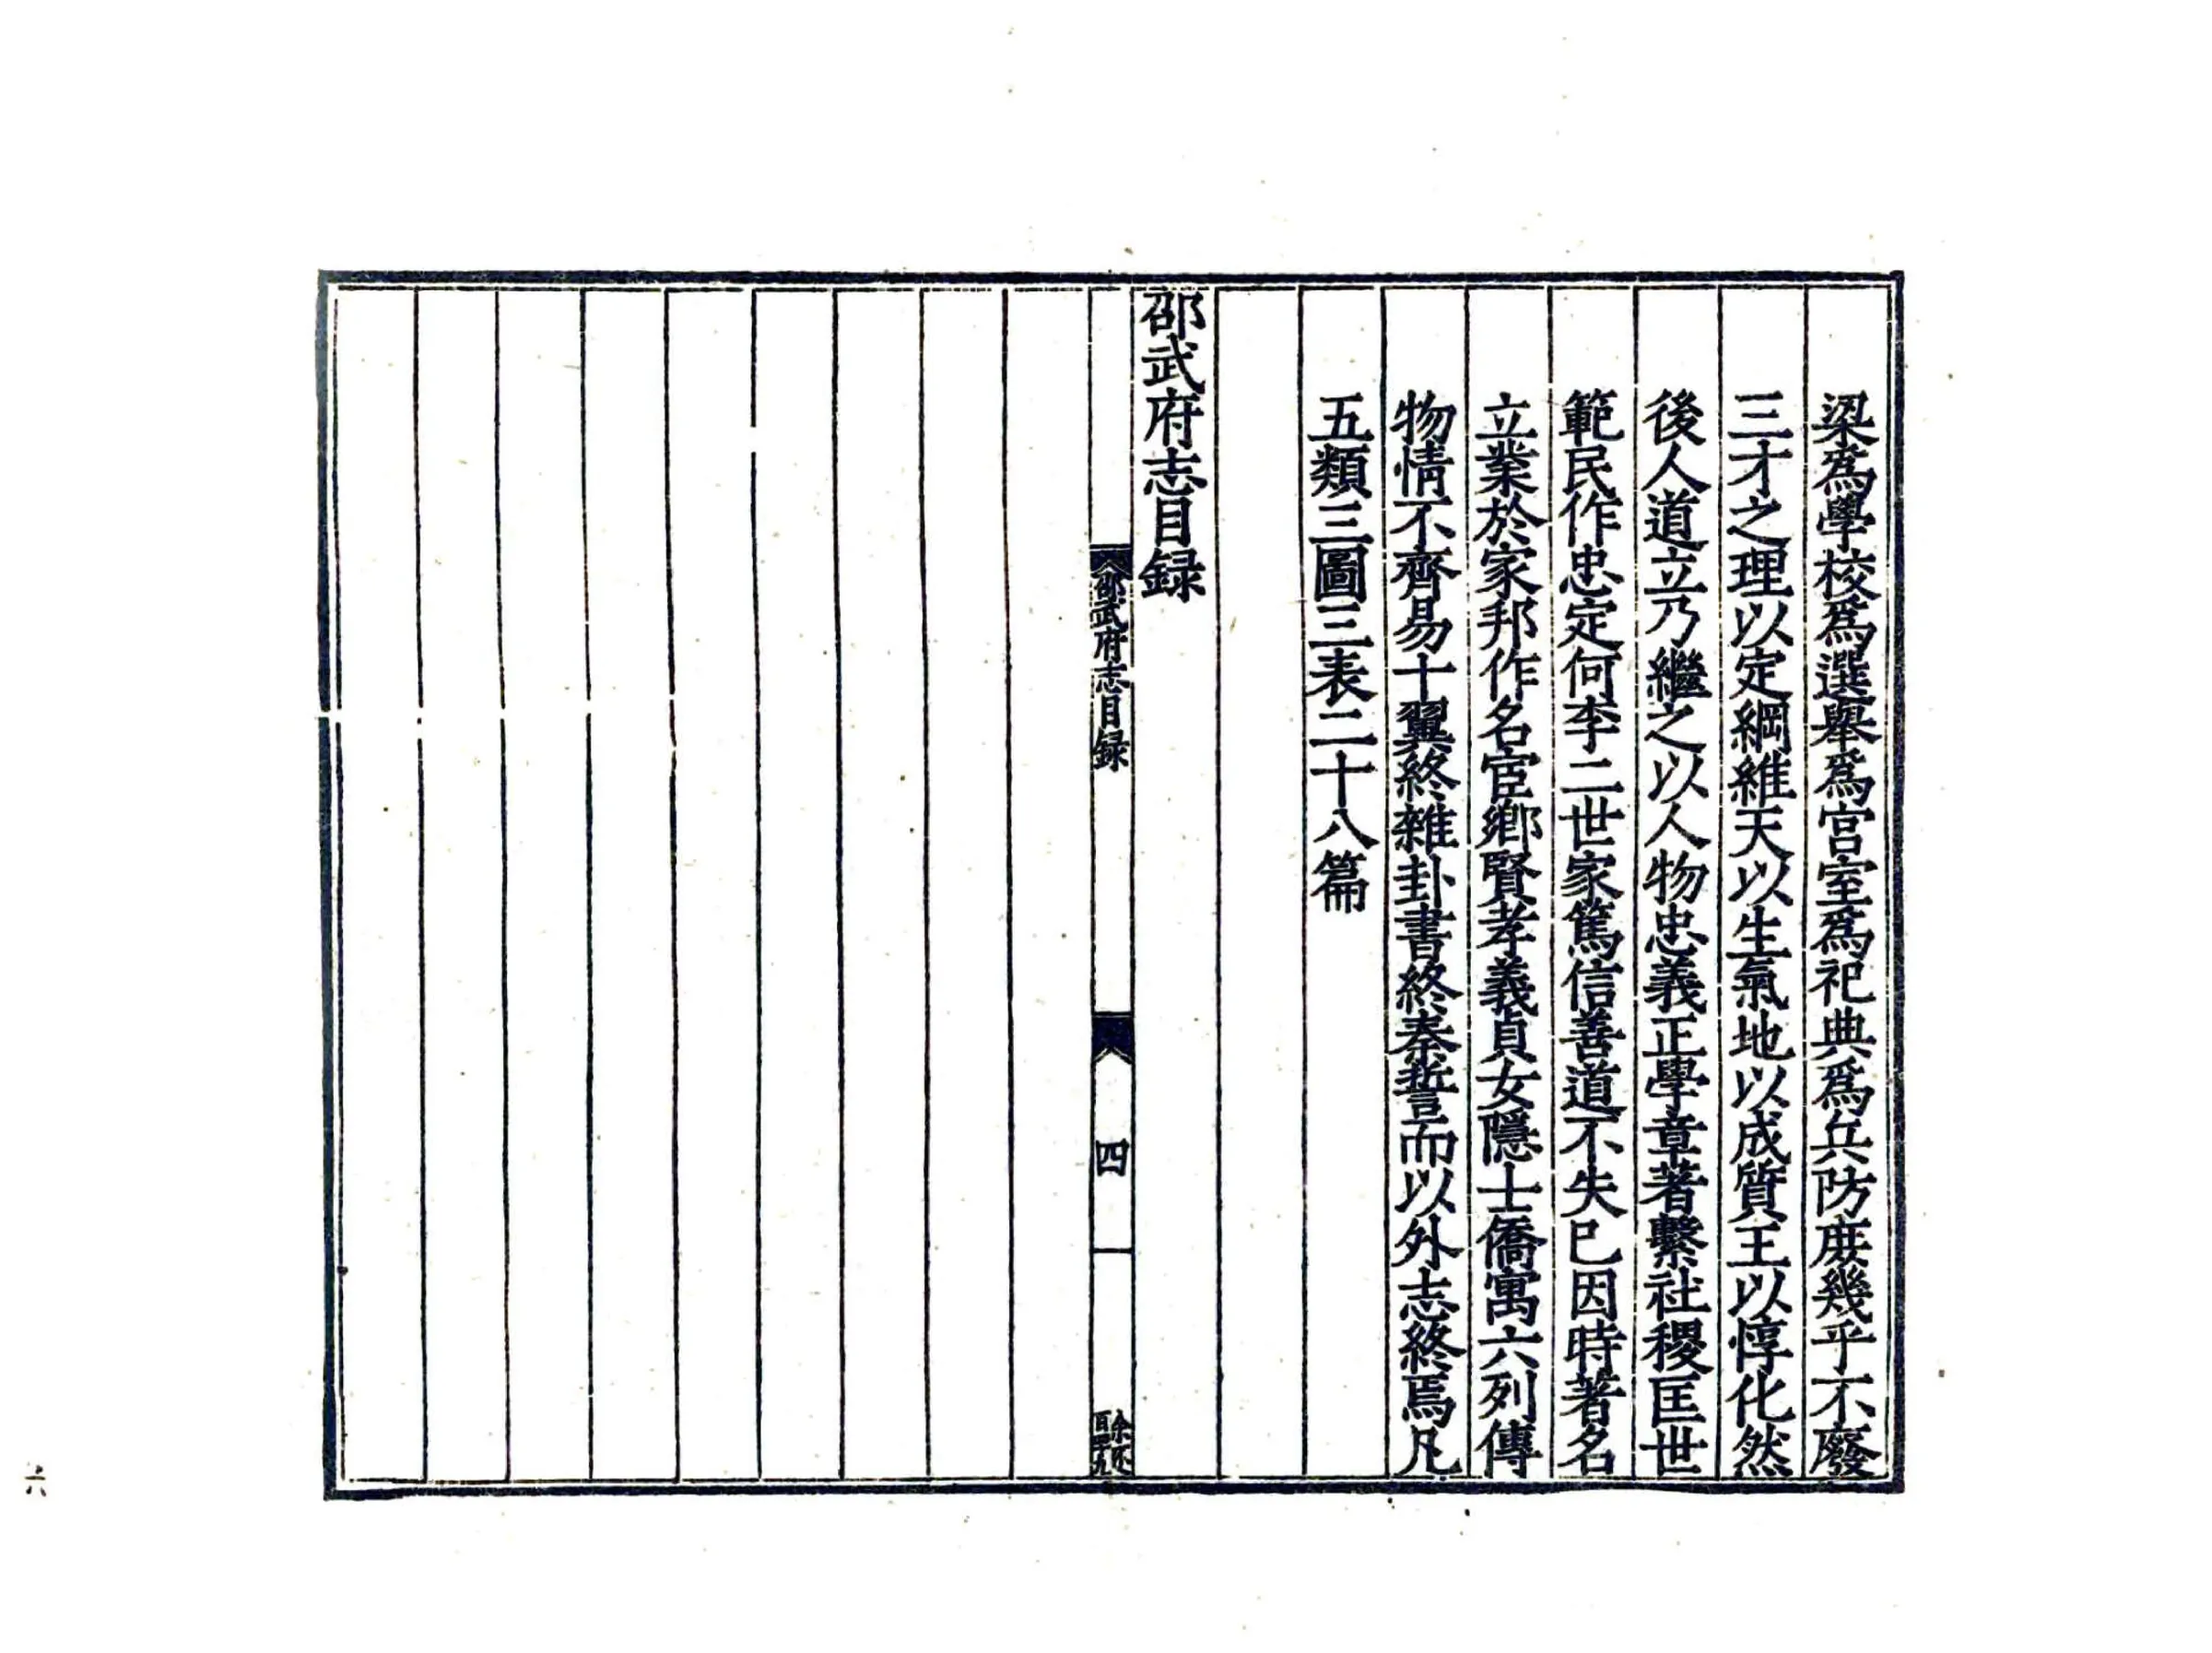 梁爲學校爲選舉爲宮室爲祀典爲兵防庶幾乎不廢
三才之理以定綱維天以生氣地以成質王以惇化然
後人道立乃繼之以人物忠義正學章著繫社稷匡世
範民作忠定何李二世家篤信善道不失已因時著名
立業於家邦作名宦鄉賢孝義貞女隱士僑寓六列傳
物情不齊易十翼終雜卦書終秦誓而以外志終焉凡
五類三圖三表二十八篇
邵武府志目録
邵武府志目録
四
六